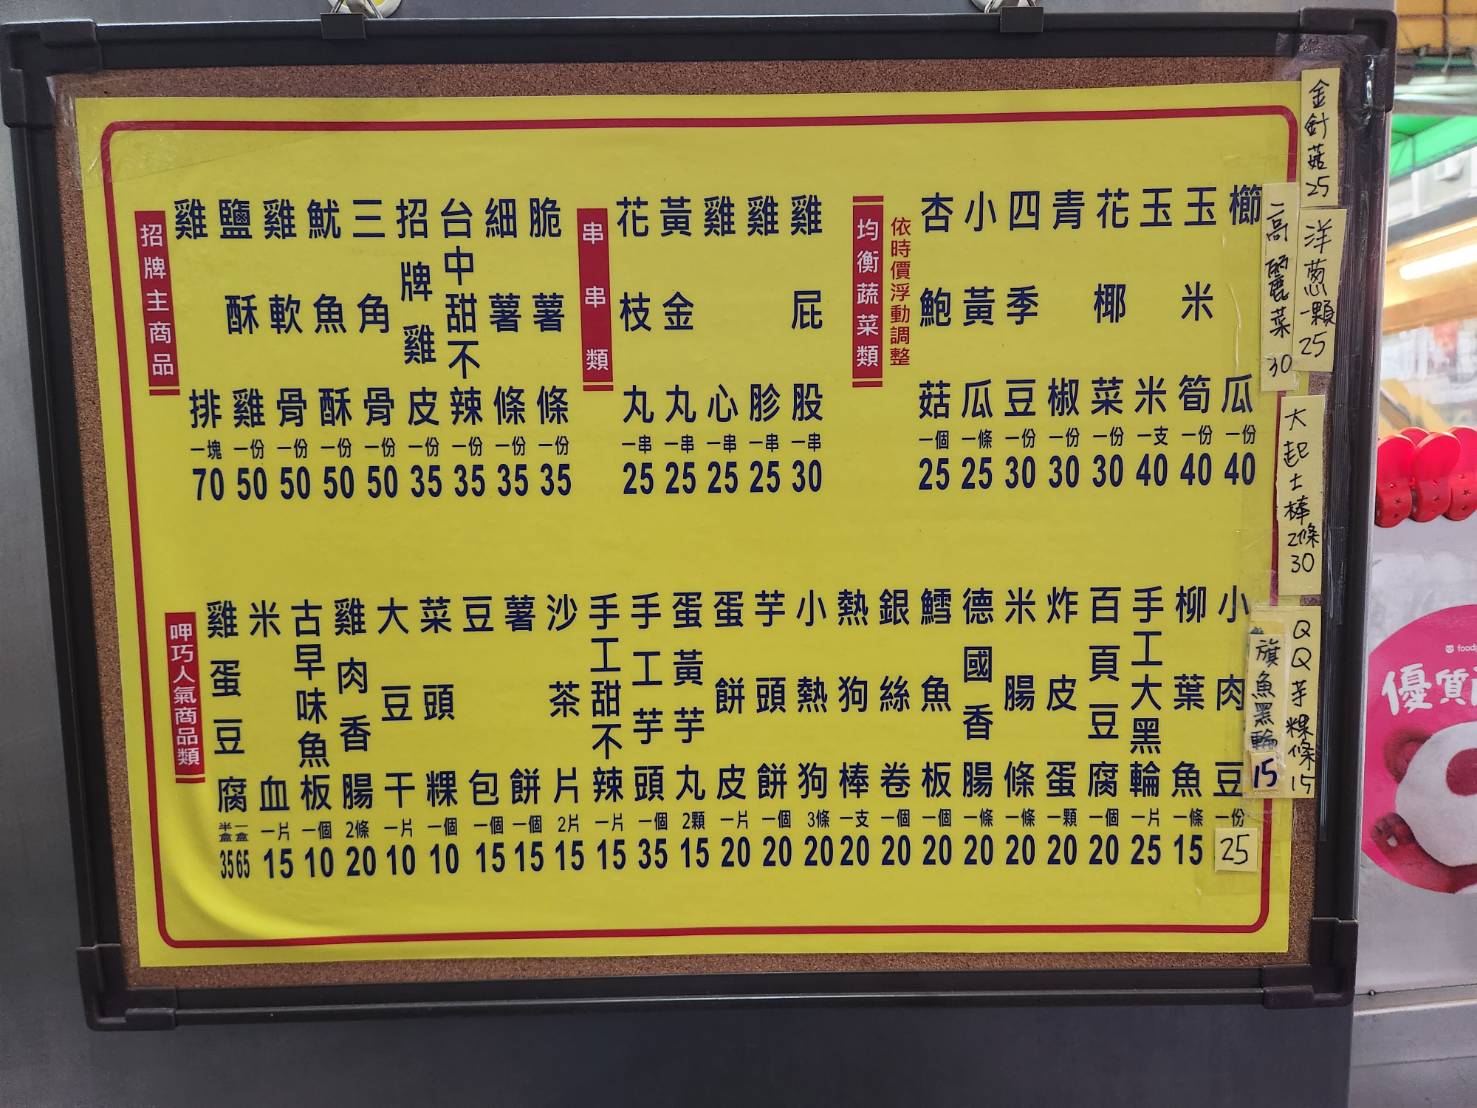 招牌主商品
雞排 一塊 70
鹽酥雞 一份 50
雞軟骨 一份 50
魷魚酥 一份 50
三角骨 一份 50
招牌雞皮 一份 35
台中甜不辣 一份 35
細薯條 一份 35
脆薯條 一份 35
串串類
花枝丸 一串 25
黃金丸 一串 25
雞心 一串 25
雞胗 一串 25
雞屁股 一串 30
均衡蔬菜類
依時價浮動調整
杏鮑菇 一個 25
小黃瓜 一條 25
四季豆 一份 30
青椒 一份 30
花椰菜 一份 30
玉米 一支 40
玉米筍 一份 40
櫛瓜 一份 40
金針菇 25
高麗菜 30
洋蔥一顆 25
大起士棒 2條 30
呷巧人氣商品類
雞蛋豆腐 半盒 35 一盒 65
米血 一片 15
古早味魚板 一個 10
雞肉香腸 2條 20
大豆干 一片 10
菜頭粿 一個 10
豆包 一個 15
薯餅 一個 15
沙茶片 2片 15
手工甜不辣 一片 15
手工芋頭 一個 35
蛋黃芋丸 2顆 15
蛋餅皮 一片 20
芋頭餅 一個 20
小熱狗 3條 20
熱狗棒 一支 20
銀絲卷 一個 20
鱈魚板 一個 20
德國香腸 一條 20
米腸條 一條 20
炸皮蛋 一顆 20
百頁豆腐 一個 20
手工大黑輪 一片 25
柳葉魚 一條 15
小肉豆 一份 25
旗魚黑輪 15
QQ芋粿條 15
foodp
優質